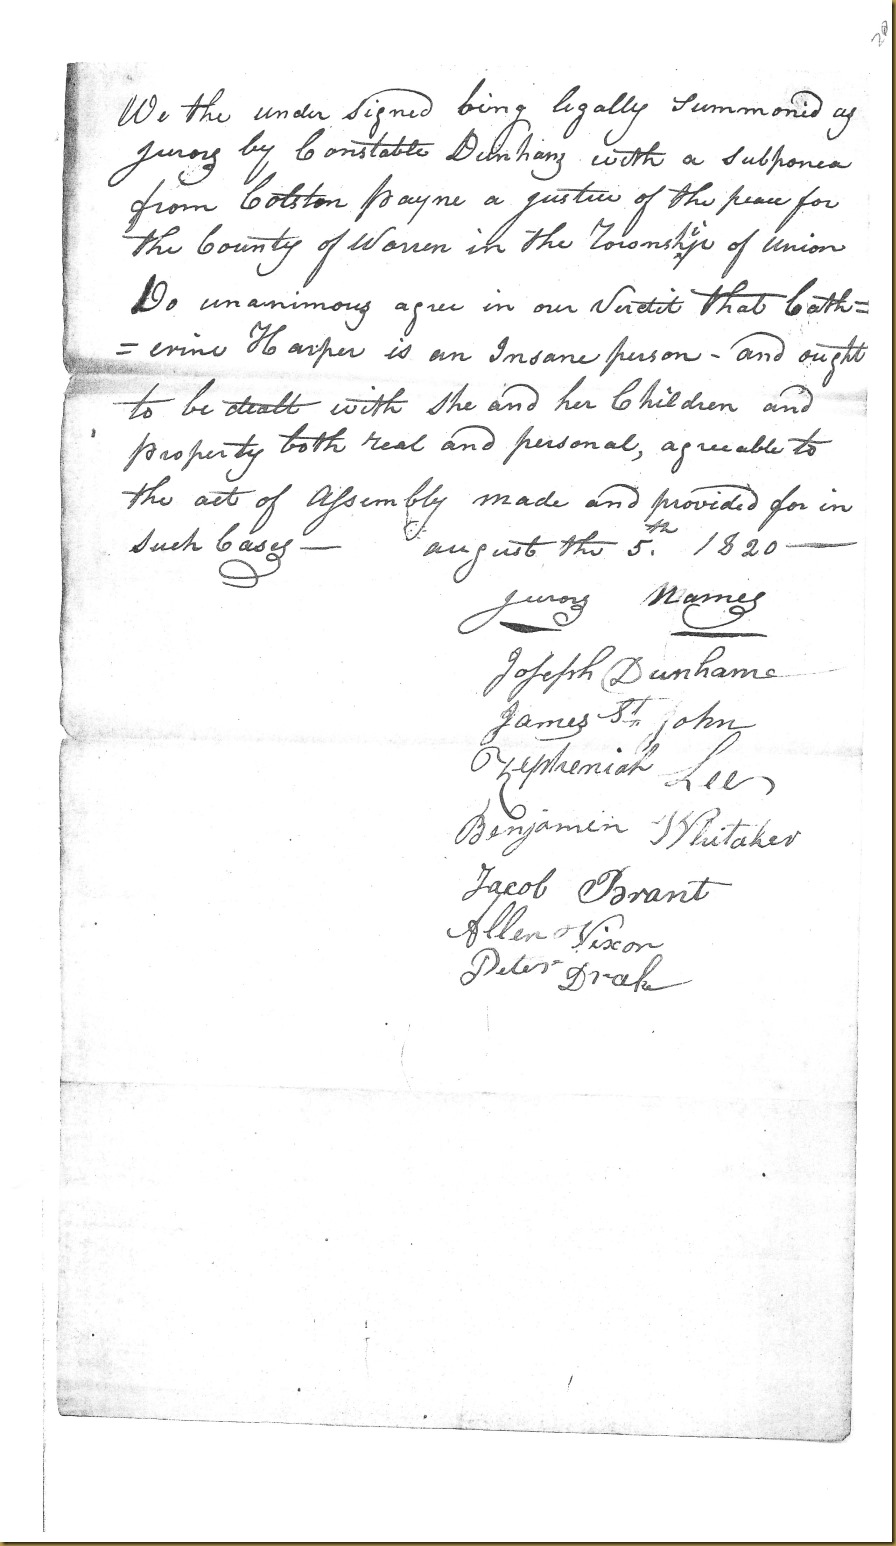 We the under Signed being legally Summonid as
jurors by Constable Dunham with a Subponea
from Colston Payne a justice of the peace for
the County of Warren in the Township of union
Do unanimous agree in our Verdit that Cath=
=erine Harper is an Insane person - and ought
to be dealt with She and her Children and
property both real and personal, agreeable to
the act of Assembly made and provided for in
Such Cases — august the 5th. 1820 —
jurors Names
Joseph Dunham
James St John
Zepheniah Lee
Benjamin Whitaker
Jacob Brant
Allen Nixon
Peter Drake